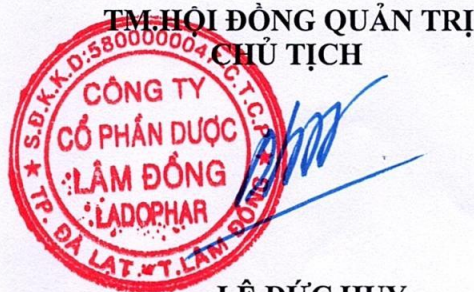 TM.HỘI ĐỒNG QUẢN TRỊ
CHỦ TỊCH
S.Đ.K.K.D:5800000047.C.T.C.P
CÔNG TY
CỔ PHẦN DƯỢC
LÂM ĐỒNG
LADOPHAR
TP. ĐÀ LẠT.T.LÂM ĐỒNG
LÊ ĐỨC HUY